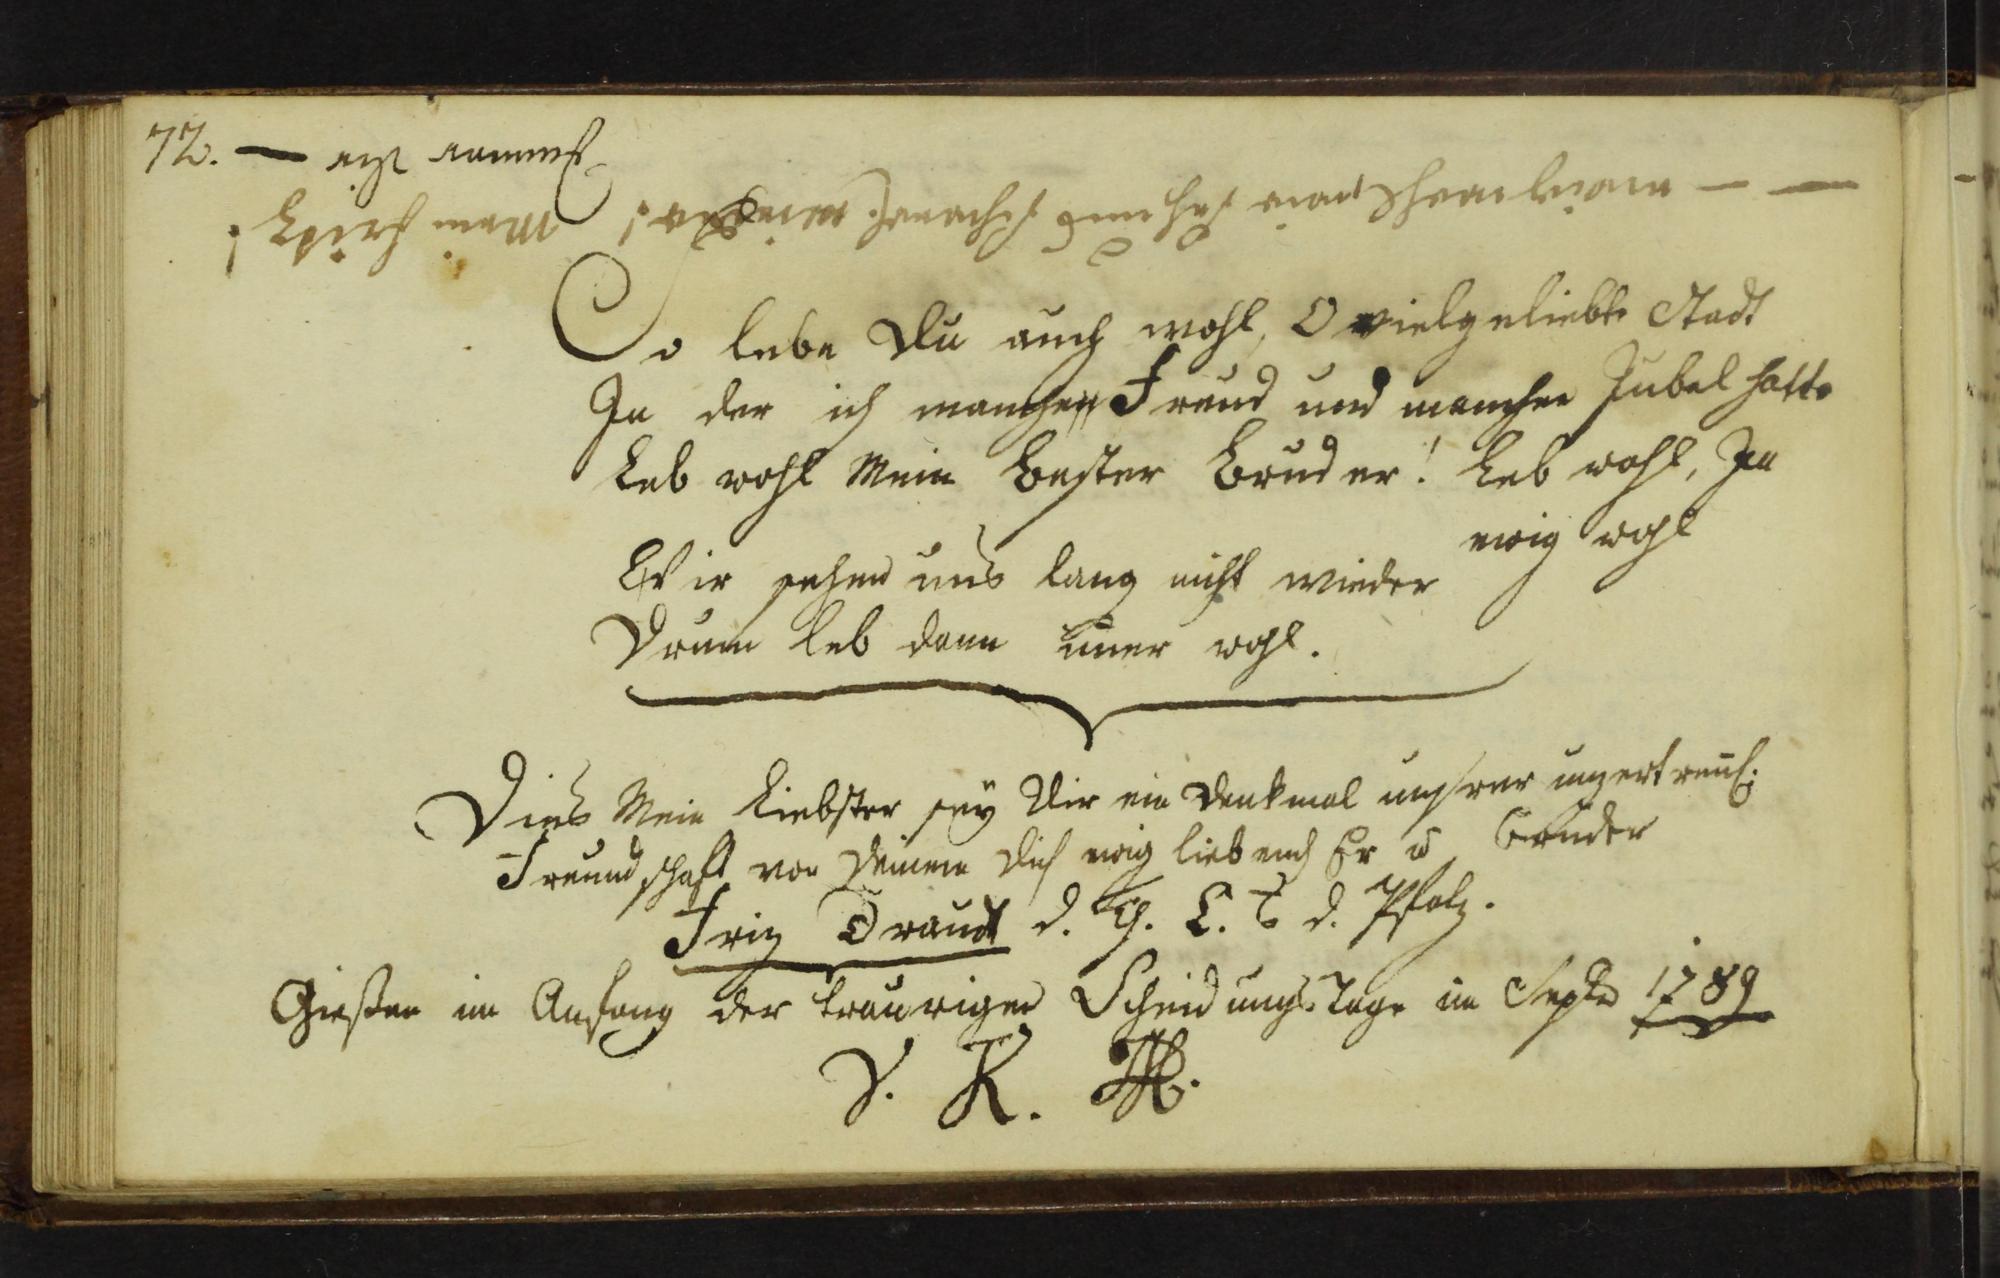 72.
So lebe Du auch wohl, O vielgeliebte Stadt
In der ich manchen Freund und manchen Jubel hatte
Leb wohl Mein Bester Bruder! Leb wohl, Ja
ewig wohl
Wir sehen uns lang nicht wieder
Drum leb dann imer wohl.
Dies Mein Liebster sey Dir ein Denkmal unsrer unzertrenl:
Freundschaft von Deinem Dich ewig liebend Fr u Bruder
Friz Draudt d. G. L. d. Pfalz.
Giesen im Anfang der traurigen Scheidungs Tage im Septr 1789
V. K.